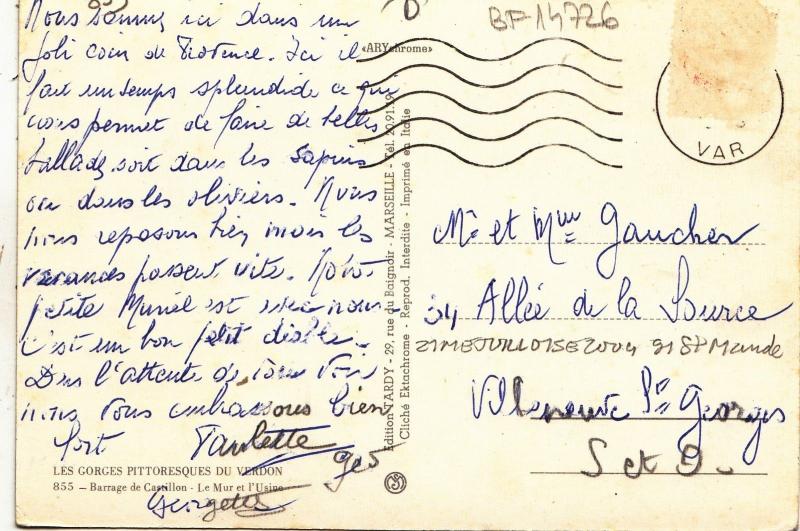 Nous sommes ici dans un
joli coin de Provence. Ici il
fait un temps splendide ce qui
nous permet de faire de belles
ballades soit dans les sapins
ou dans les oliviers. Nous
nous reposons bien mais les
vacances passent vite. Notre
petite Muriel est avec nous.
C'est un bon petit diable.
Dans l'attente de vous voir
nous vous embrassons bien
fort Paulette
Geo
Georgette
LES GORGES PITTORESQUES DU VERDON
855 - Barrage de Castillon - Le Mur et l'Usine
«ARYchrome»
Edition TARDY - 29, rue du Baignoir - MARSEILLE - Tél. 20.91.19
Cliché Ektachrome - Reprod. Interdite - Imprimé en Italie
BF 14726
VAR
Mr et Mme Gaucher
34 Allée de la Source
2004 St Mande
Villeneuve St Georges
S et O